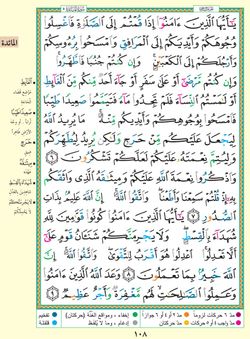 المائدة
يَٰٓأَيُّهَا ٱلَّذِينَ ءَامَنُوٓا۟ إِذَا قُمْتُمْ إِلَى ٱلصَّلَوٰةِ فَٱغْسِلُوا۟
وُجُوهَكُمْ وَأَيْدِيَكُمْ إِلَى ٱلْمَرَافِقِ وَٱمْسَحُوا۟ بِرُءُوسِكُمْ
وَأَرْجُلَكُمْ إِلَى ٱلْكَعْبَيْنِ ۚ وَإِن كُنتُمْ جُنُبًا فَٱطَّهَّرُوا۟ ۚ
وَإِن كُنتُم مَّرْضَىٰٓ أَوْ عَلَىٰ سَفَرٍ أَوْ جَآءَ أَحَدٌ مِّنكُم مِّنَ ٱلْغَآئِطِ
أَوْ لَٰمَسْتُمُ ٱلنِّسَآءَ فَلَمْ تَجِدُوا۟ مَآءً فَتَيَمَّمُوا۟ صَعِيدًا طَيِّبًا
فَٱمْسَحُوا۟ بِوُجُوهِكُمْ وَأَيْدِيكُم مِّنْهُ ۚ مَا يُرِيدُ ٱللَّهُ
لِيَجْعَلَ عَلَيْكُم مِّنْ حَرَجٍ وَلَٰكِن يُرِيدُ لِيُطَهِّرَكُمْ
وَلِيُتِمَّ نِعْمَتَهُۥ عَلَيْكُمْ لَعَلَّكُمْ تَشْكُرُونَ ٦
وَٱذْكُرُوا۟ نِعْمَةَ ٱللَّهِ عَلَيْكُمْ وَمِيثَٰقَهُ ٱلَّذِى وَاثَقَكُم
بِهِۦٓ إِذْ قُلْتُمْ سَمِعْنَا وَأَطَعْنَا ۖ وَٱتَّقُوا۟ ٱللَّهَ ۚ إِنَّ ٱللَّهَ عَلِيمٌۢ بِذَاتِ
ٱلصُّدُورِ ٧ يَٰٓأَيُّهَا ٱلَّذِينَ ءَامَنُوا۟ كُونُوا۟ قَوَّٰمِينَ لِلَّهِ
شُهَدَآءَ بِٱلْقِسْطِ ۖ وَلَا يَجْرِمَنَّكُمْ شَنَـَٔانُ قَوْمٍ عَلَىٰٓ
أَلَّا تَعْدِلُوا۟ ۚ ٱعْدِلُوا۟ هُوَ أَقْرَبُ لِلتَّقْوَىٰ ۖ وَٱتَّقُوا۟ ٱللَّهَ ۚ إِنَّ
ٱللَّهَ خَبِيرٌۢ بِمَا تَعْمَلُونَ ٨ وَعَدَ ٱللَّهُ ٱلَّذِينَ ءَامَنُوا۟
وَعَمِلُوا۟ ٱلصَّٰلِحَٰتِ ۙ لَهُم مَّغْفِرَةٌ وَأَجْرٌ عَظِيمٌ ٩
١٠٨